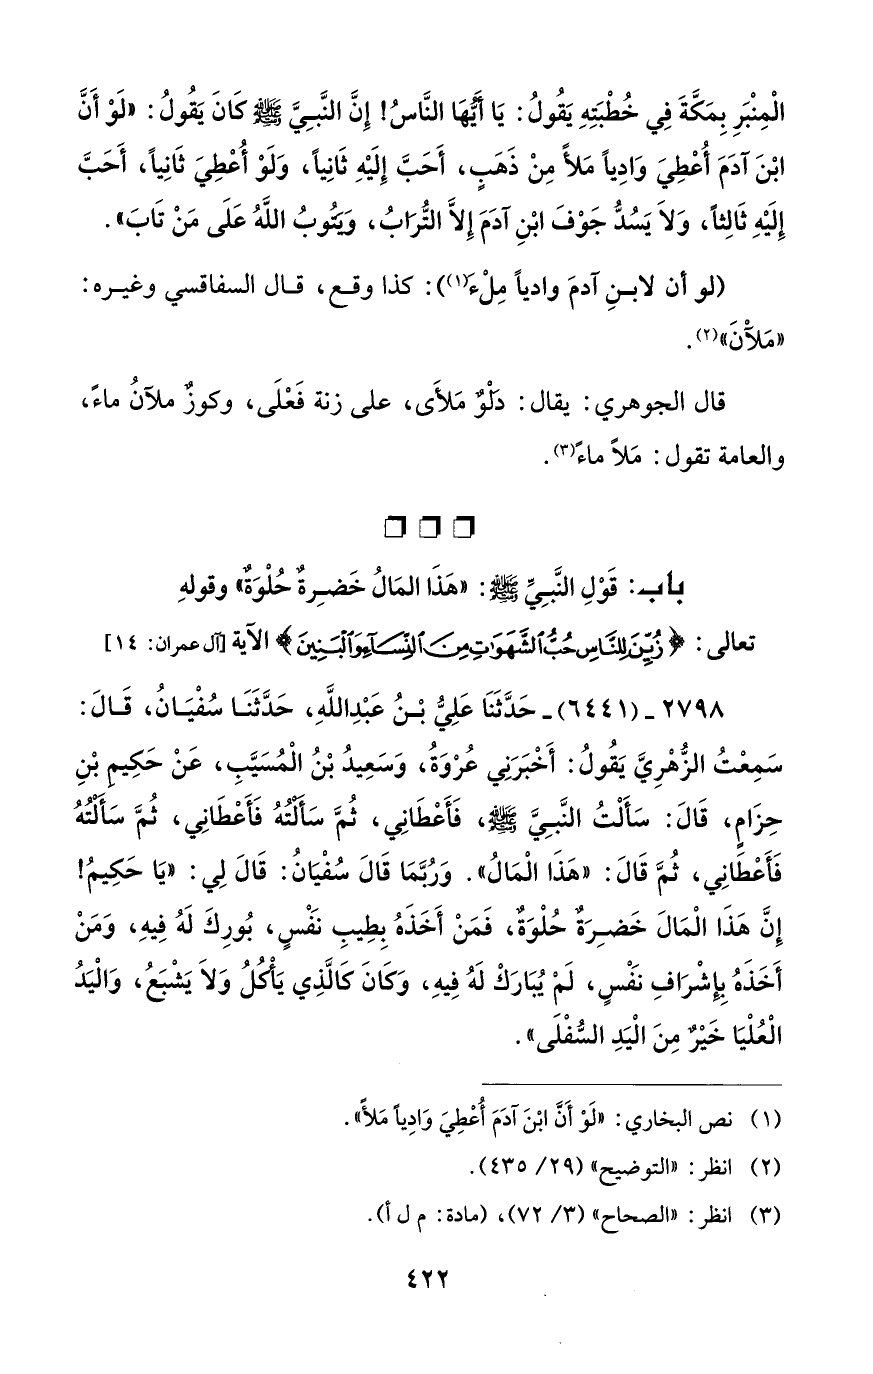 الْمِنْبَرِ بِمَكَّةَ فِي خُطْبَتِهِ يَقُولُ: يَا أَيُّهَا النَّاسُ! إِنَّ النَّبِيَّ ﷺ كَانَ يَقُولُ: «لَوْ أَنَّ
ابْنَ آدَمَ أُعْطِيَ وَادِياً مَلأً مِنْ ذَهَبٍ، أَحَبَّ إِلَيْهِ ثَانِياً، وَلَوْ أُعْطِيَ ثَانِياً، أَحَبَّ
إِلَيْهِ ثَالِثاً، وَلاَ يَسُدُّ جَوْفَ ابْنِ آدَمَ إِلاَّ التُّرَابُ، وَيَتُوبُ اللَّهُ عَلَى مَنْ تَابَ».
(لو أن لابنِ آدمَ وادياً مِلْءَ(١)): كذا وقع، قال السفاقسي وغيره:
«مَلآْنَ»(٢).
قال الجوهري: يقال: دَلْوٌ مَلأَى، على زنة فَعْلَى، وكوزٌ ملآنُ ماءً،
والعامة تقول: مَلاً ماءً(٣).
❒ ❒ ❒
باب: قَوْلِ النَّبِيِّ ﷺ: «هَذَا المَالُ خَضِرةٌ حُلْوَةٌ» وقولهِ
تعالى: ﴿زُيِّنَ لِلنَّاسِ حُبُّ ٱلشَّهَوَٰتِ مِنَ ٱلنِّسَآءِ وَٱلْبَنِينَ﴾ الآية [آل عمران: ١٤]
٢٧٩٨ ـ (٦٤٤١) ـ حَدَّثَنَا عَلِيُّ بْنُ عَبْدِاللَّهِ، حَدَّثَنَا سُفْيَانُ، قَالَ:
سَمِعْتُ الزُّهْرِيَّ يَقُولُ: أَخْبَرَنِي عُرْوَةُ، وَسَعِيدُ بْنُ الْمُسَيَّبِ، عَنْ حَكِيمِ بْنِ
حِزَامٍ، قَالَ: سَأَلْتُ النَّبِيَّ ﷺ، فَأَعْطَانِي، ثُمَّ سَأَلْتُهُ فَأَعْطَانِي، ثُمَّ سَأَلْتُهُ
فَأَعْطَانِي، ثُمَّ قَالَ: «هَذَا الْمَالُ». وَرُبَّمَا قَالَ سُفْيَانُ: قَالَ لِي: «يَا حَكِيمُ!
إِنَّ هَذَا الْمَالَ خَضِرَةٌ حُلْوَةٌ، فَمَنْ أَخَذَهُ بِطِيبِ نَفْسٍ، بُورِكَ لَهُ فِيهِ، وَمَنْ
أَخَذَهُ بِإِشْرَافِ نَفْسٍ، لَمْ يُبَارَكْ لَهُ فِيهِ، وَكَانَ كَالَّذِي يَأْكُلُ وَلاَ يَشْبَعُ، وَالْيَدُ
الْعُلْيَا خَيْرٌ مِنَ الْيَدِ السُّفْلَى».
(١) نص البخاري: «لَوْ أَنَّ ابْنَ آدَمَ أُعْطِيَ وَادِياً مَلأً».
(٢) انظر: «التوضيح» (٢٩/ ٤٣٥).
(٣) انظر: «الصحاح» (٣/ ٧٢)، (مادة: م ل أ).
٤٢٢